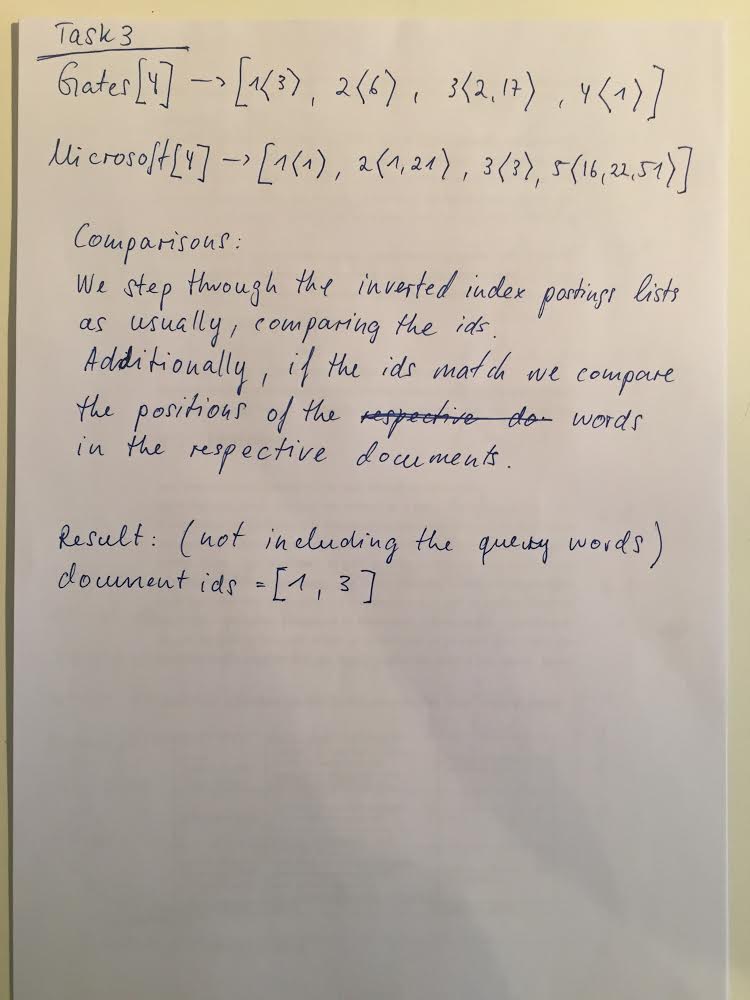 Task 3
Gates[4] → [1⟨3⟩, 2⟨6⟩, 3⟨2,17⟩, 4⟨1⟩]
Microsoft[4] → [1⟨1⟩, 2⟨1,21⟩, 3⟨3⟩, 5⟨16,22,51⟩]
Comparisons:
We step through the inverted index postings lists
as usually, comparing the ids.
Additionally, if the ids match we compare
the positions of the respective do words
in the respective documents.
Result: (not including the query words)
document ids = [1, 3]